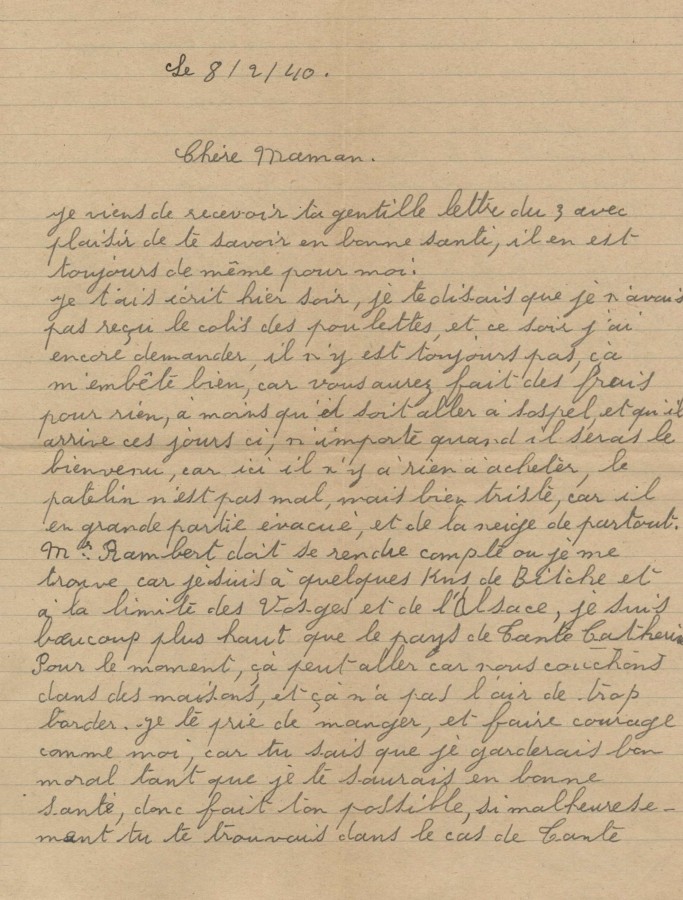 Le 8/2/40.
Chère Maman.
je viens de recevoir ta gentille lettre du 3 avec
plaisir de te savoir en bonne santé, il en est
toujours de même pour moi.
je t'ais écrit hier soir, je te disais que je n'avais
pas reçu le colis des poulettes, et ce soir j'ai
encore demander, il n'y est toujours pas, çà
m'embête bien, car vous aurez fait des frais
pour rien, à moins qu'il soit aller à Sospel, et qu'il
arrive ces jours ci, n'importe quand il seras le
bienvenu, car ici il n'y à rien à acheter, le
patelin n'est pas mal, mais bien triste, car il
en grande partie évacué, et de la neige de partout.
Mr Rambert doit se rendre compte ou je me
trouve car je suis à quelques Kms de Bitche et
à la limite des Vosges et de l'Alsace, je suis
beaucoup plus haut que le pays de Tante Catherin
Pour le moment, çà peut aller car nous couchons
dans des maisons, et çà n'a pas l'air de trop
barder. je te prie de manger, et faire courage
comme moi, car tu sais que je garderais bon
moral tant que je te saurais en bonne
santé, donc fait ton possible, si malheurese-
ment tu te trouvais dans le cas de Tante